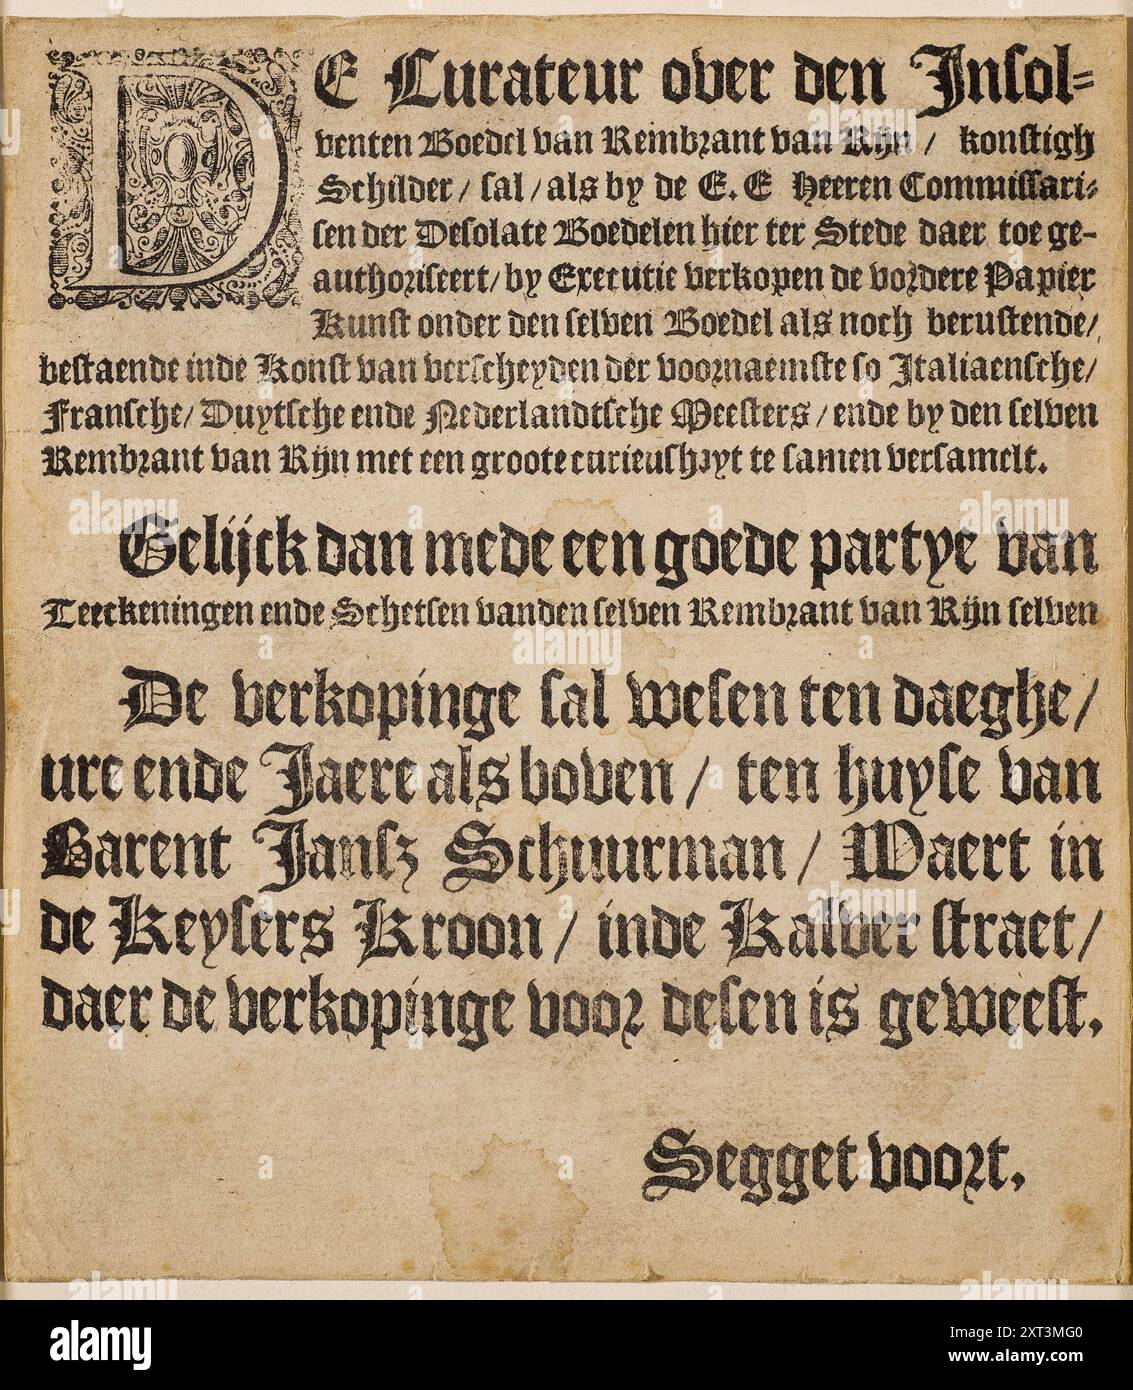 DE Curateur over den Insol-
venten Boedel van Rembrant van Rijn / konstigh
Schilder / sal / als by de E. E Heeren Commissari-
sen der Desolate Boedelen hier ter Stede daer toe ge-
authoriseert / by Executie verkopen de vordere Papier
Kunst onder den selven Boedel als noch berustende /
bestaende inde Konst van verscheyden der voornaemste so Italiaensche /
Fransche / Duytsche ende Nederlandtsche Meesters / ende by den selven
Rembrant van Rijn met een groote curieusheyt te samen versamelt.
Gelijck dan mede een goede partye van
Teeckeningen ende Schetsen vanden selven Rembrant van Rijn selven
De verkopinge sal wesen ten daeghe /
ure ende Jaere als boven / ten huyse van
Barent Jansz Schuurman / Waert in
de Keysers Kroon / inde Kalver straet /
daer de verkopinge voor desen is geweest.
Segget voort.
alamy
Image ID: 2XT3MG0
www.alamy.com